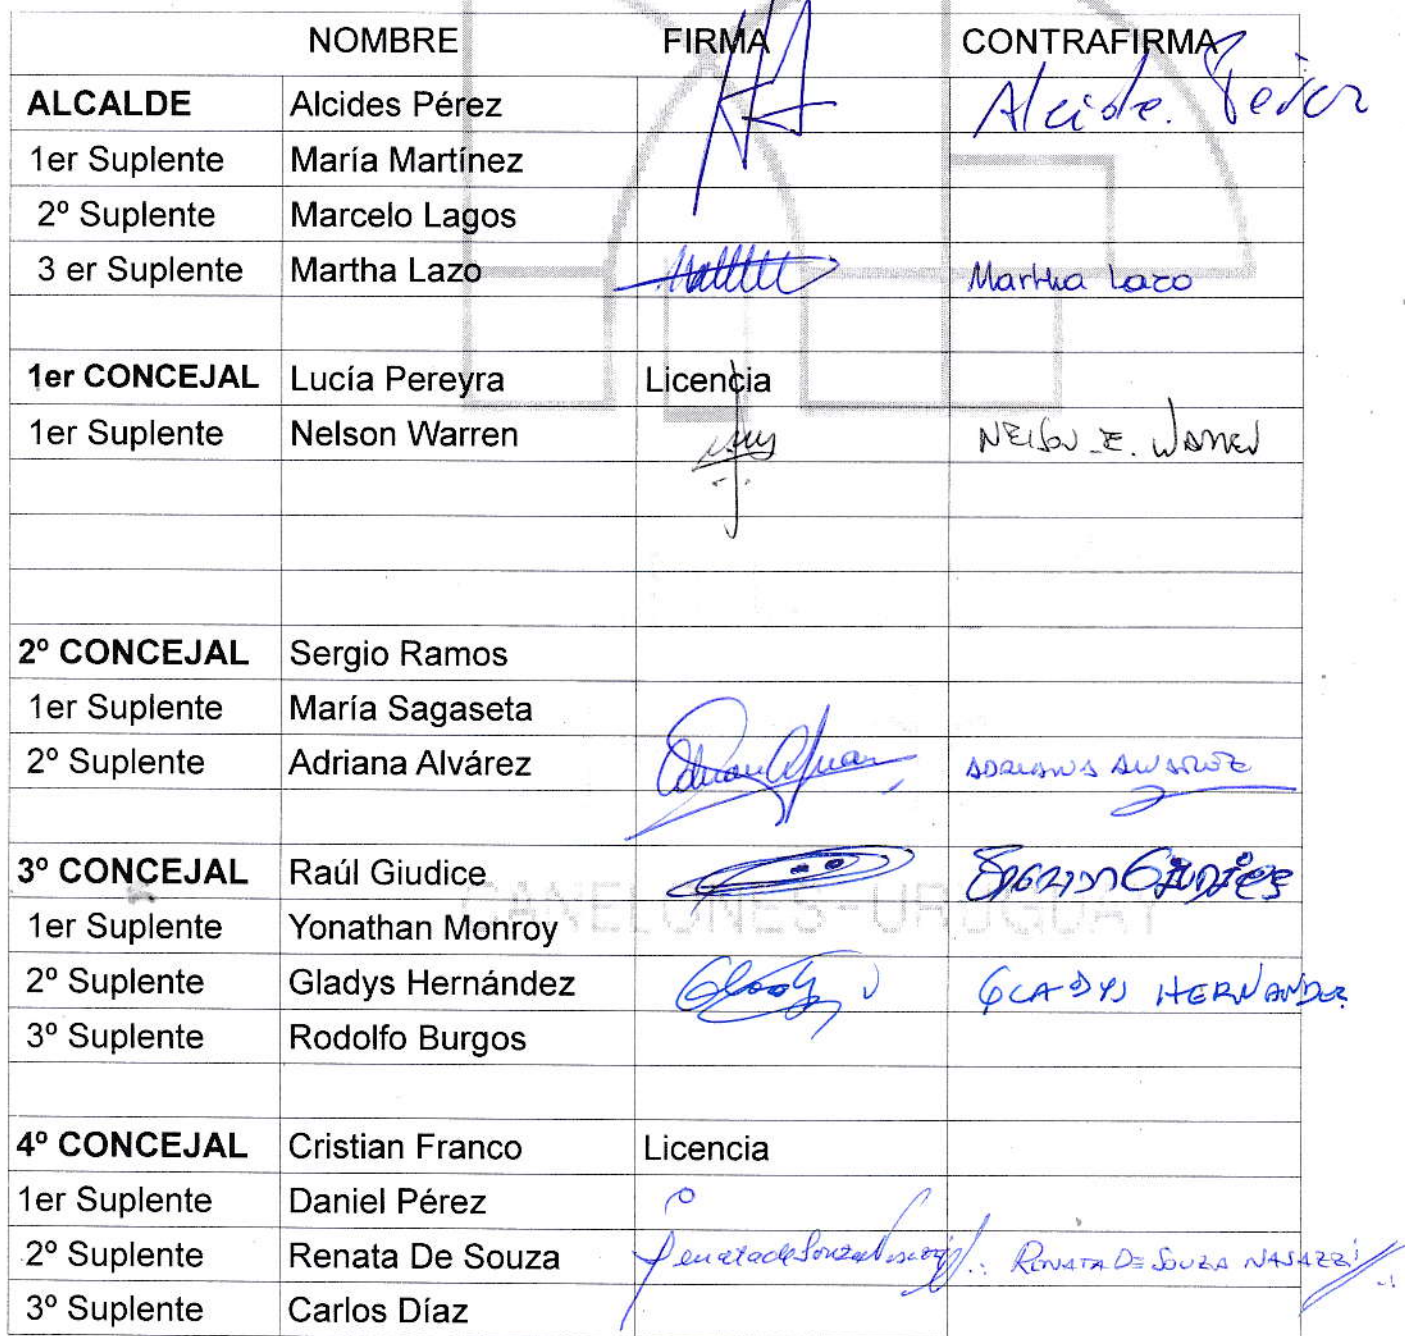 NOMBRE FIRMA CONTRAFIRMA
ALCALDE Alcides Pérez Alcide. Perez
1er Suplente María Martínez
2º Suplente Marcelo Lagos
3 er Suplente Martha Lazo Martha Lazo
1er CONCEJAL Lucía Pereyra Licencia
1er Suplente Nelson Warren NELSON E. WARREN
2º CONCEJAL Sergio Ramos
1er Suplente María Sagaseta
2º Suplente Adriana Alvárez ADRIANA ALVAREZ
3º CONCEJAL Raúl Giudice
1er Suplente Yonathan Monroy
CANELONES-URUGUAY
2º Suplente Gladys Hernández Gladys GLADYS HERNANDEZ
3º Suplente Rodolfo Burgos
4º CONCEJAL Cristian Franco Licencia
1er Suplente Daniel Pérez
2º Suplente Renata De Souza Renata de Souza RENATA DE SOUZA NASAZZI
3º Suplente Carlos Díaz